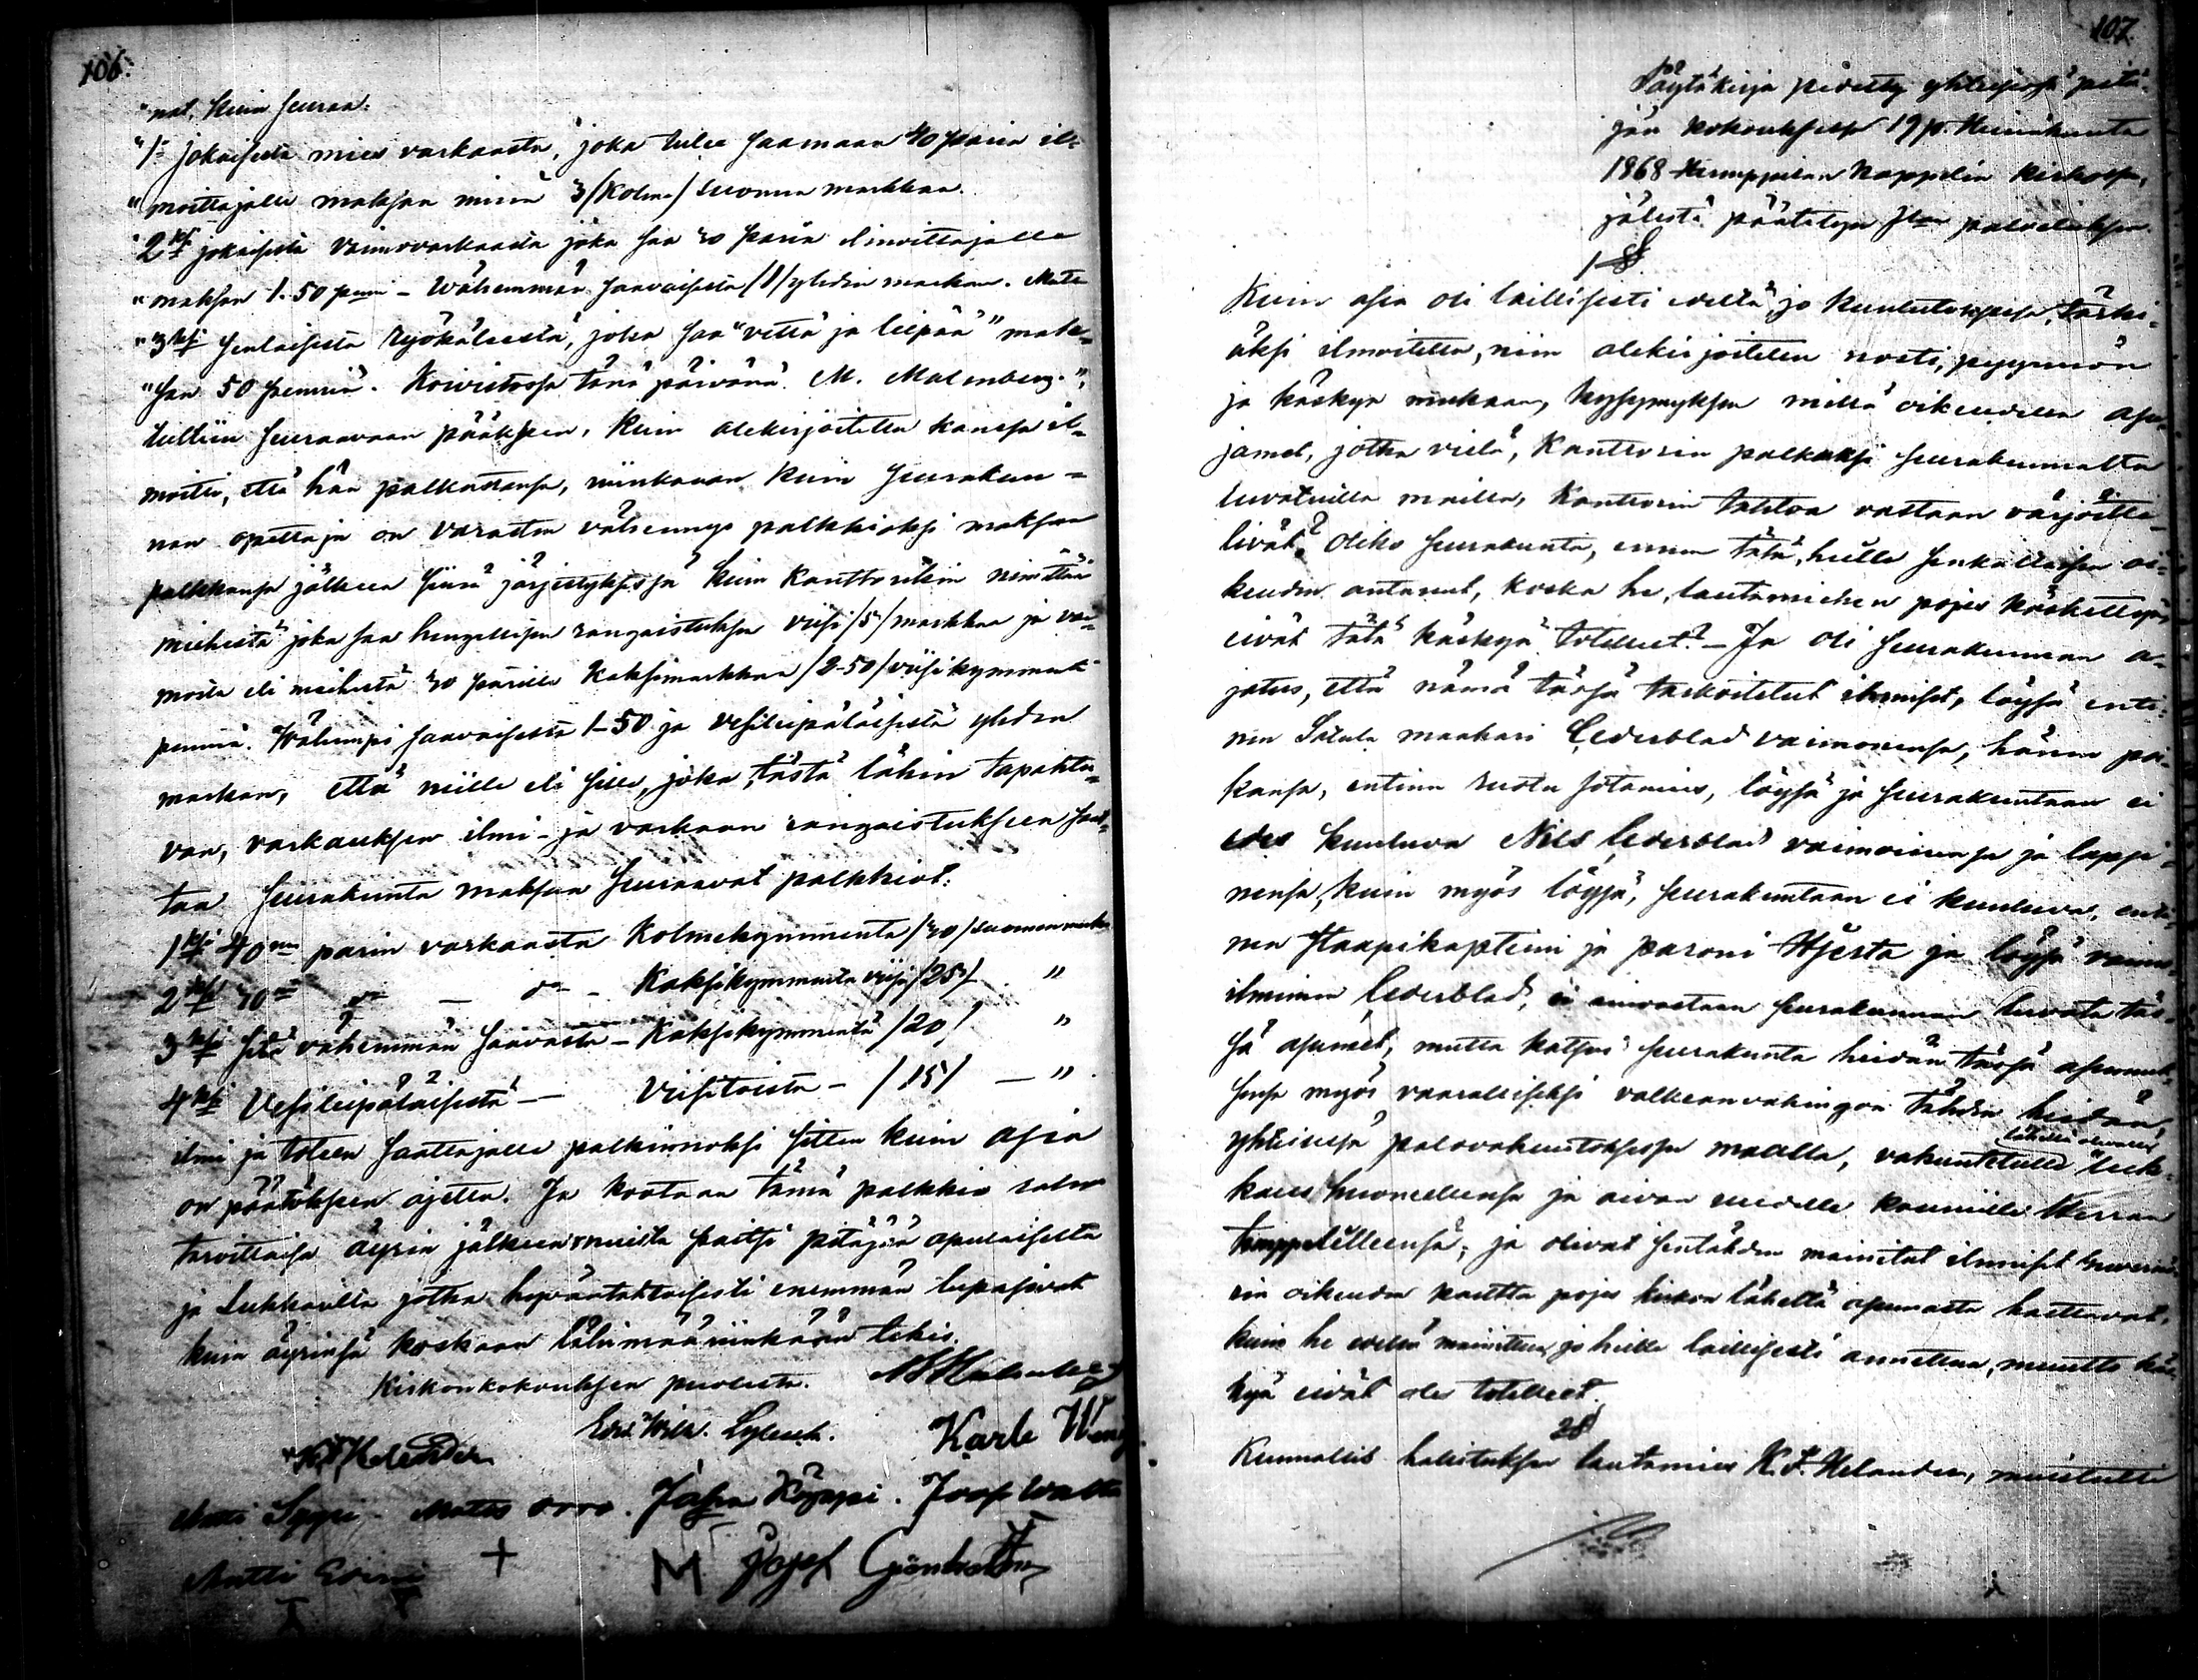 106.
"nat, kuin seuraa:
"1= jokaisesta mies varkaasta, joka tulee saamaan 40 paria il-
"moittajalle maksan minä 3/Kolme/ Suomen markkaa.
"2ksi jokaisesta vaimovarkaasta joka saa 30 paria ilmoittajalle
"maksan 1.50 penni - Wähemmän saavaisesta /1/ yhden markan. Mutta
"3ksi senlaisesta ryökäleestä, joka saa "vettä ja leipää" mak-
"san 50 penniä. Koivistossa tänä päivänä. M. Malmberg.",
tultiin seuraavaan päätökseen, kuin allekirjoitettu kanssa il-
moitti, että hän palkastansa, niinkauan kuin seurakun-
nan opettaja on varaston vähennys palkkioksi maksaa
palkkansa jälkeen siinä järjestyksessä kuin Kanttorikin nimittäin
miehestä joka saa hengellisen rangaistuksen viisi /5/ markkaa ja vai-
mosta eli miehestä 30 parilla Kaksimarkkaa /2-50/ viisikymmentä
penniä. Wähempi saavaisesta 1-50 ja vesileipäläisestä yhden
markan, että niille eli sille, joka, tästä lähin tapahtu-
van, varkauksen ilmi- ja varkaan rangaistukseen saat-
taa Seurakunta maksaa seuraavat palkkiot:
1ksi 40nen parin varkaasta Kolmekymmentä /30/ Suomen markkaa
2ksi 30nen do - do - Kaksikymmentä viisi /25/ "
3ksi sitä vähemmän saavasta - Kaksikymmentä /20/ "
4ksi Vesileipäläisestä - Viisitoista - /15/ - "
ilmi ja toteen saattajalle palkinnoksi sitten kuin asia
on päätökseen ajettu. Ja kootaan tämä palkkio
tarvittaissa äyrin jälkeen muilta paitsi pitäjän apulaiselta
ja Lukkarilta jotka hyväntahtoisesti enemmän lupasivat
kuin äyrinsä koskaan lähimääriinkään tekis.
Kirkonkokouksen puolesta. M Malmberg
K. F. Helander Erik Wilh. Sylvest. Karle
Matti Seppi - Matts Orro. Josef
Matti + M Josef Grönholm
107.
Pöytäkirja pidetty yhteisessä pitä-
jän kokouksessa 19 p. Heinäkuuta
1868 Humppilan Kappelin kirkossa,
jälestä päätetyn Jumalan palveluksen.
1 §.
Kuin asia oli laillisesti edeltä jo kuulutuksessa, tärki-
äksi ilmoitettu, niin allekirjoitettu nosti, pyynnön
ja käskyn mukaan, kysymyksen millä oikeudella asu-
jamet, jotka vielä, Kanttorin palkaksi seurakunnalta
luvatuilla mailla, Kanttorin tahtoa vastaan värjöitte-
livät? Oliko seurakunta, ennen tätä, heille senkaltaisen oi-
keuden antanut, koska he, lautamiehen pojes käskettyä
eivät tätä käskyä totelleet? - Ja oli seurakunnan a-
jatus, että nämä tässä tarkoitetut ihmiset, löysä enti-
nen Satula maakari Cederblad vaimonensa, hänen poi-
kansa, entinen ruotu sotamies, löysä ja seurakuntaan ei
edes kuuluva Nils Cederblad vaimoinensa ja lapsi-
nensa, kuin myös löysä, seurakuntaan ei kuuluva, enti-
nen Staapikapteeni ja paroni Hjerta ja löysä vaimo-
ihminen Cederblad, ei ainoastaan seurakunnan luvatta täs-
sä asuneet, mutta katsoi seurakunta heidän tässä asumuk-
sensa myös vaaralliseksi valkeanvahingon tähden heidän,
yhteisessä palovakuutoksessa maalla, vakuutetulle lähellä olevalle luk-
karis huoneellensa ja aivan uudelle kauniille Herran
temppelillensä; ja olivat sentähden mainitut ihmiset kuvernöö-
rin oikeuden kautta pojes kirkon läheltä asumasta haettavat,
kuin he edellä mainittua, ja heille laillisesti annettua, muutto käs-
kyä eivät oles totelleet.
2 §
Kunnallis halituksen lautamies K. F. Helander, muistutti